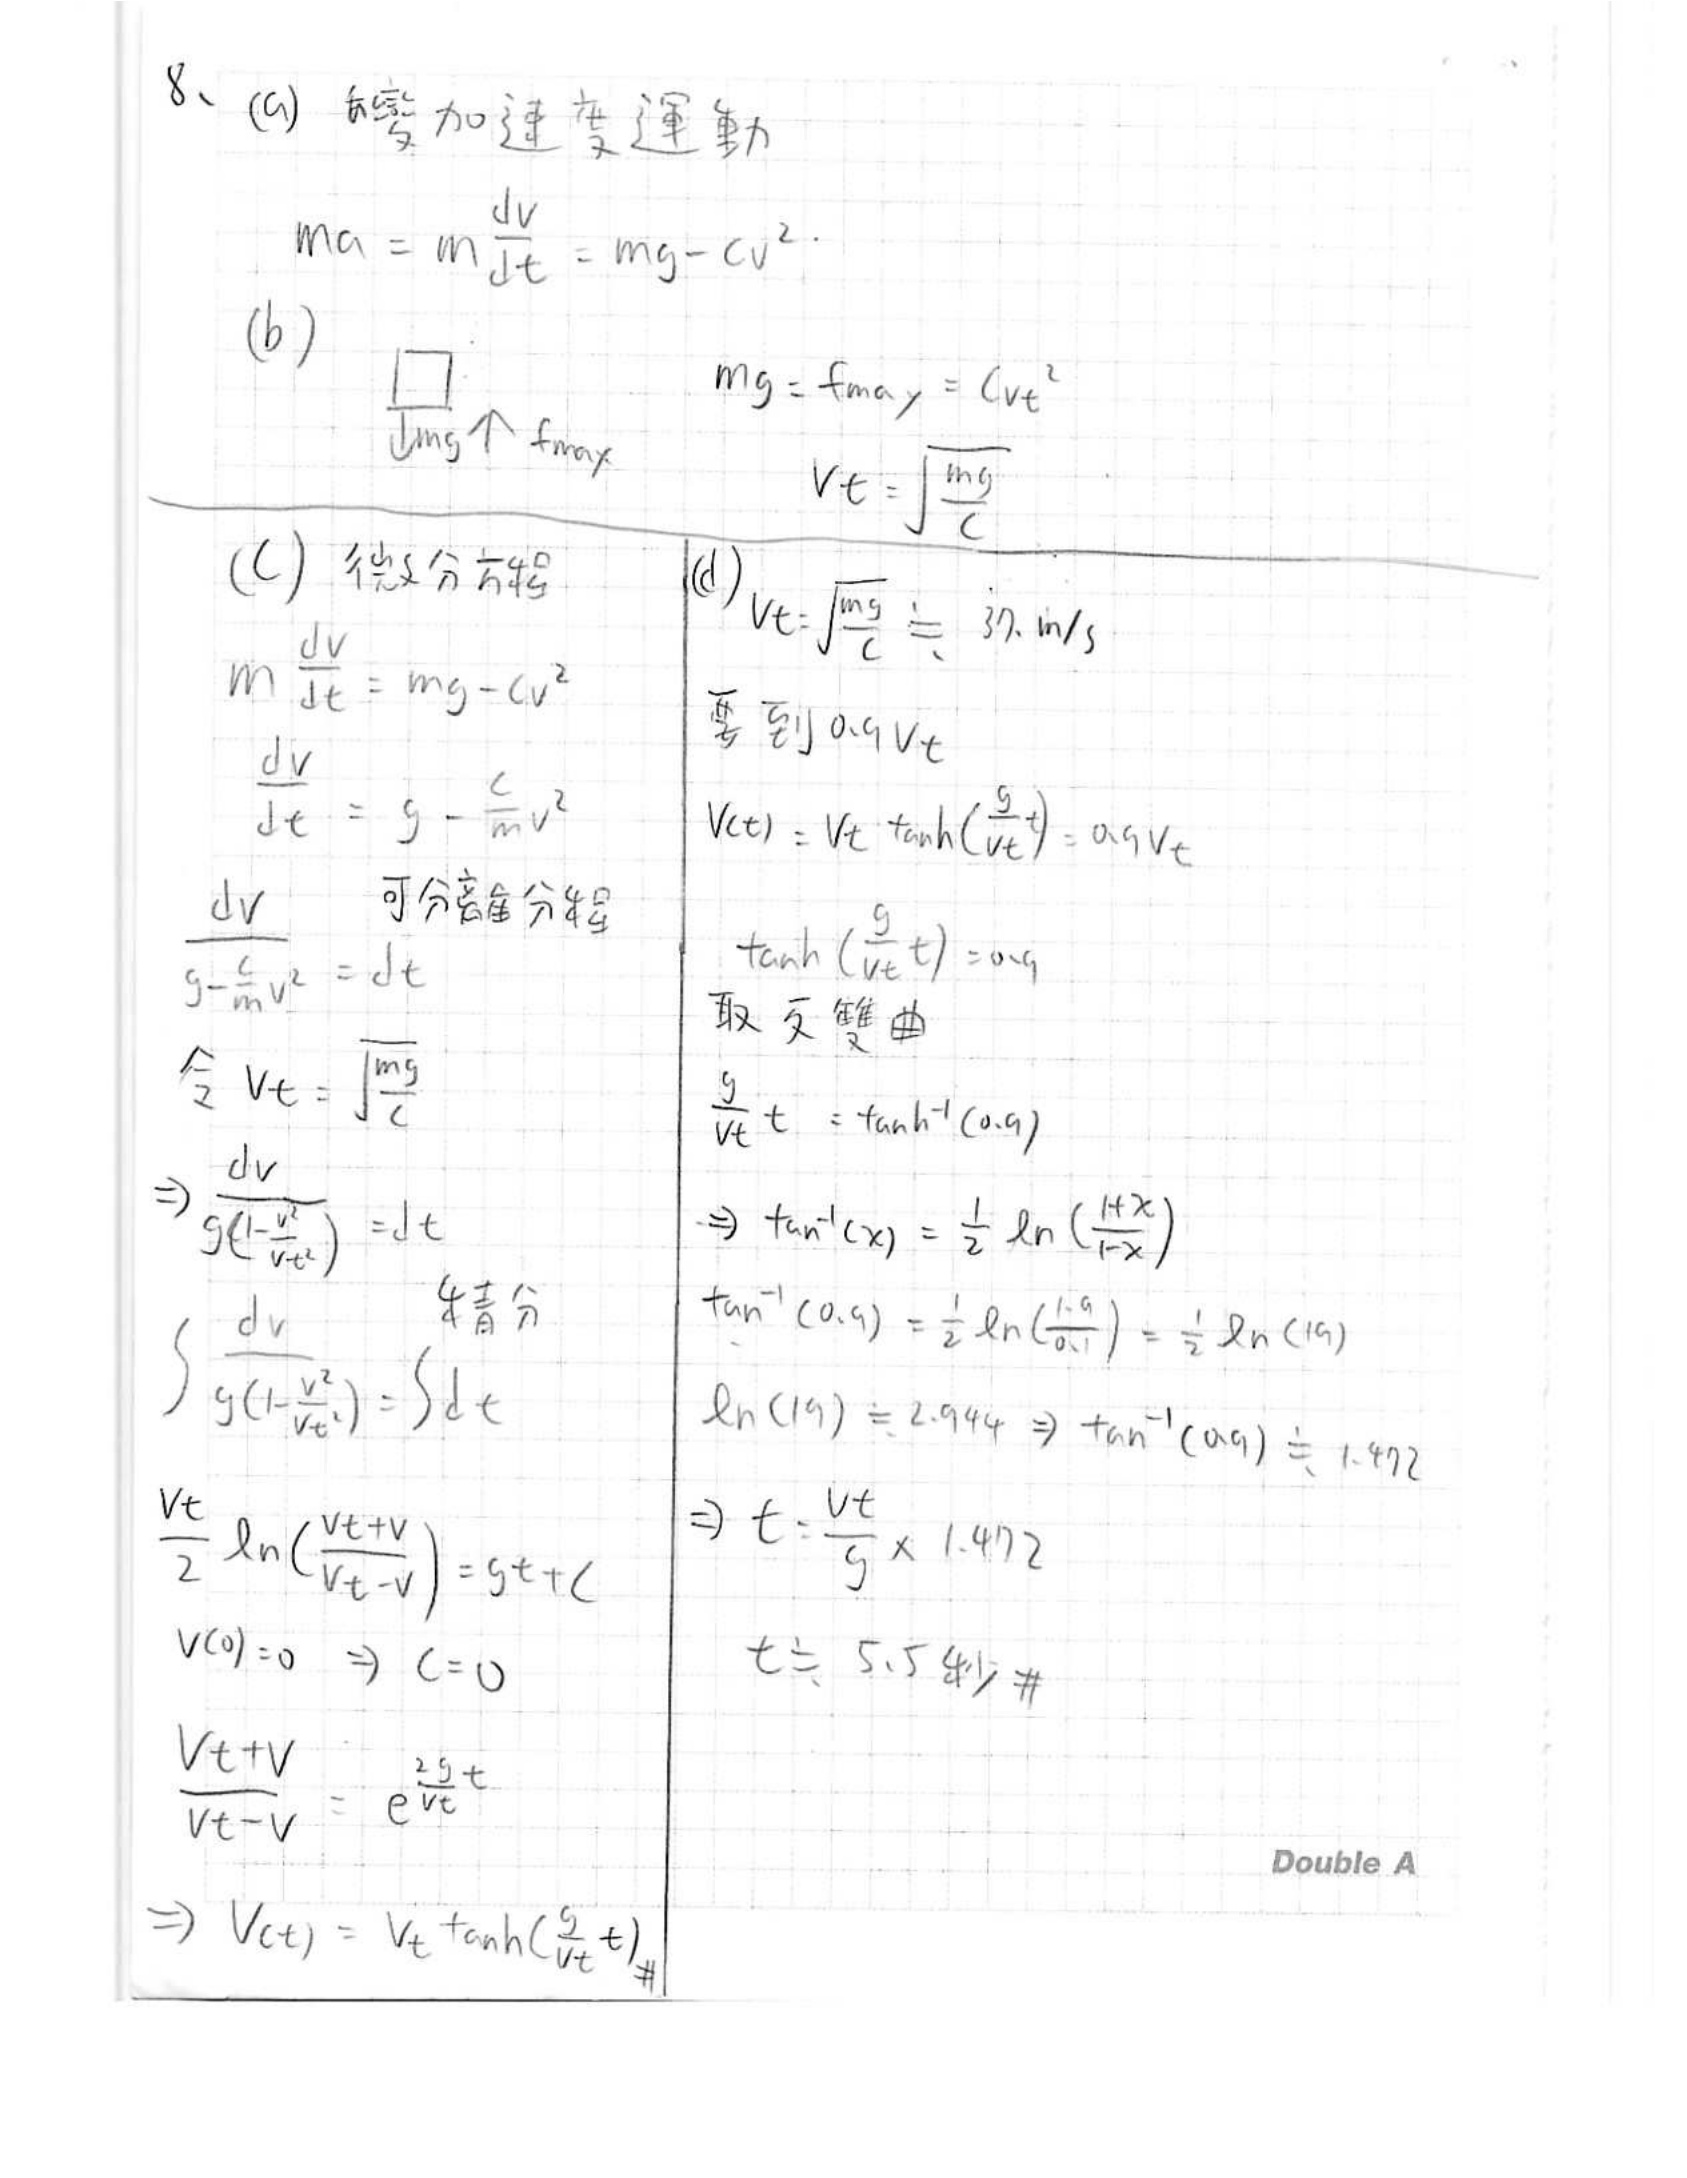 8、 (a) 變加速度運動
ma = m dv/dt = mg - cv².
(b)
mg = fmax = Cvt²
↓mg ↑ fmax
Vt = √(mg/c)
(C) 微分方程
m dv/dt = mg - cv²
dv/dt = g - c/m v²
可分離分程
dv/(g - c/m v²) = dt
令 Vt = √(mg/c)
⇒ dv/(g(1 - v²/vt²)) = dt
積分
∫ dv/(g(1 - v²/vt²)) = ∫dt
Vt/2 ln((Vt+v)/(Vt-v)) = gt + C
V(0) = 0 ⇒ C = 0
(Vt+V)/(Vt-V) = e^(2g/Vt t)
⇒ V(t) = Vt tanh(g/Vt t) #
(d)
Vt = √(mg/c) ≒ 37. m/s
要到 0.9 Vt
V(t) = Vt tanh(g/Vt t) = 0.9 Vt
tanh(g/Vt t) = 0.9
取反雙曲
g/Vt t = tanh⁻¹(0.9)
⇒ tan⁻¹(x) = 1/2 ln((1+x)/(1-x))
tan⁻¹(0.9) = 1/2 ln(1.9/0.1) = 1/2 ln(19)
ln(19) ≒ 2.944 ⇒ tan⁻¹(0.9) ≒ 1.472
⇒ t = Vt/g × 1.472
t ≒ 5.5 秒 #
Double A